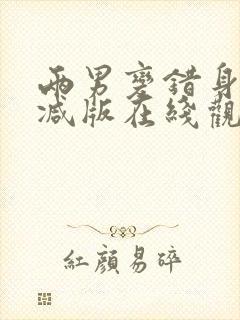 兩男變錯身
減版在綫觀
紅顔易碎